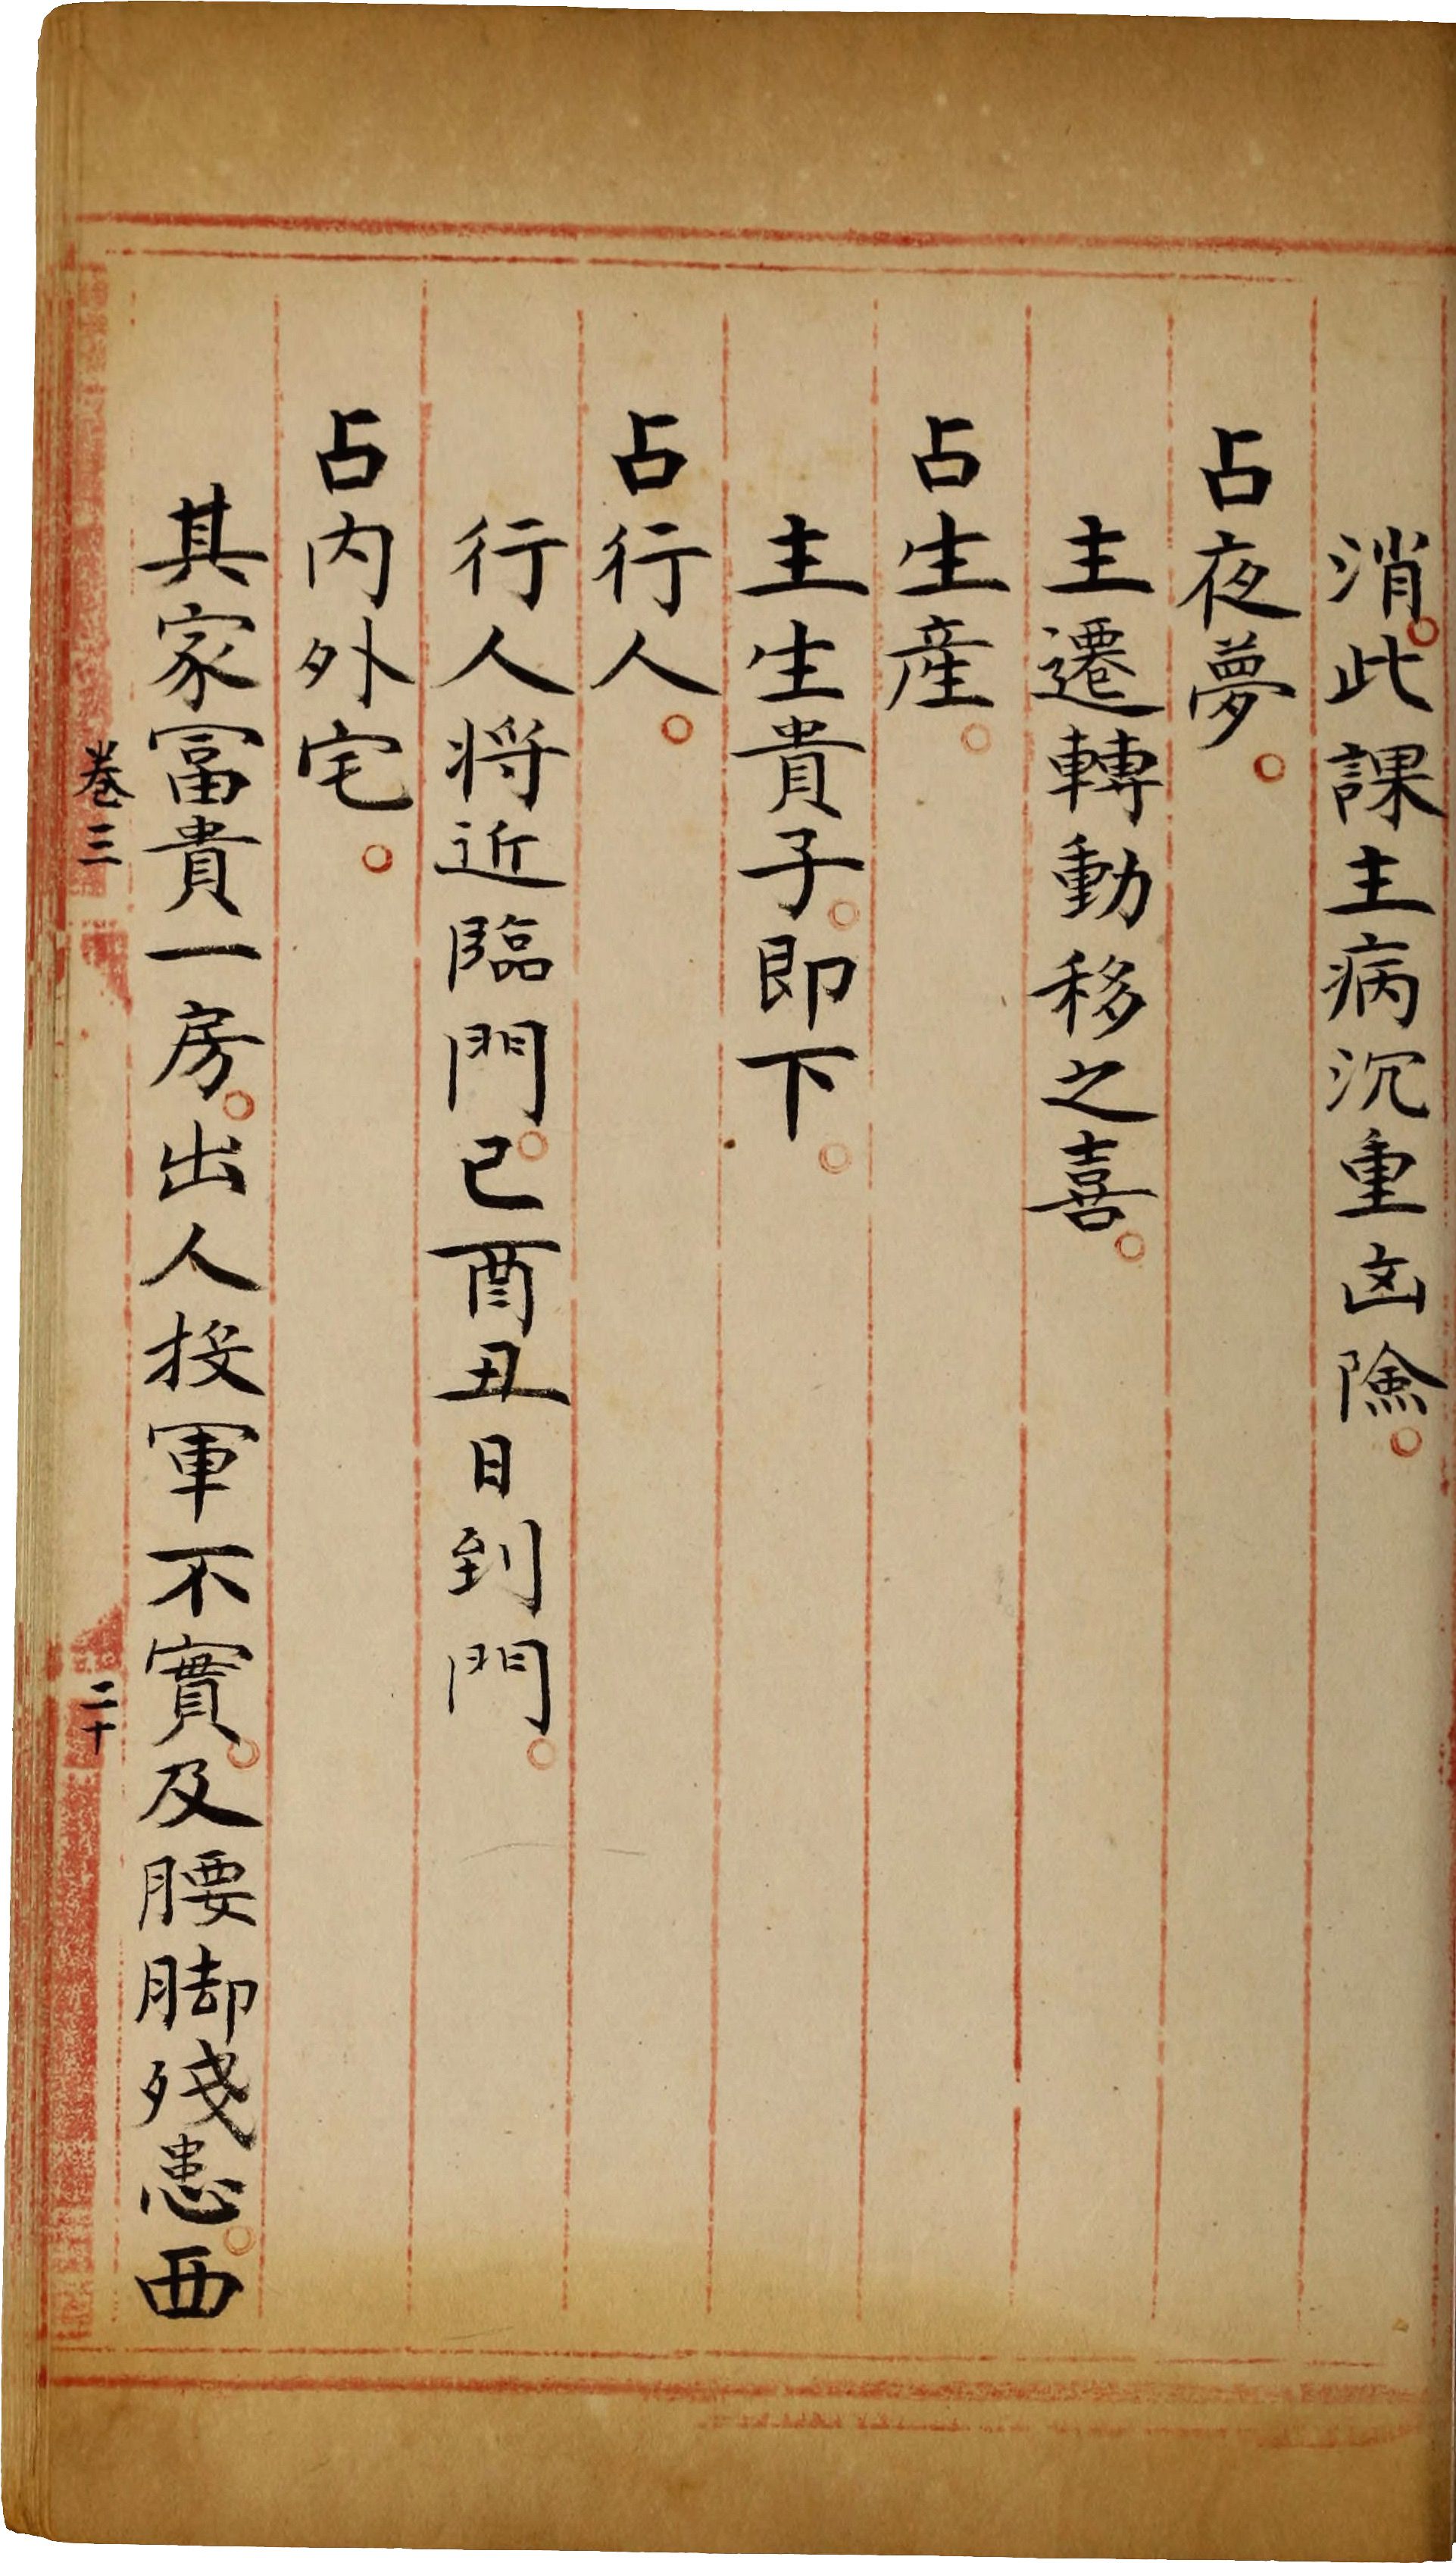 消。此課主病沉重凶險。
占夜夢。
主遷轉動移之喜。
占生産。
主生貴子。即下。
占行人。
行人将近臨門。已酉丑日到門。
占内外宅。
其家冨貴一房。出人投軍不實。及腰脚殘患。西
卷三
二十